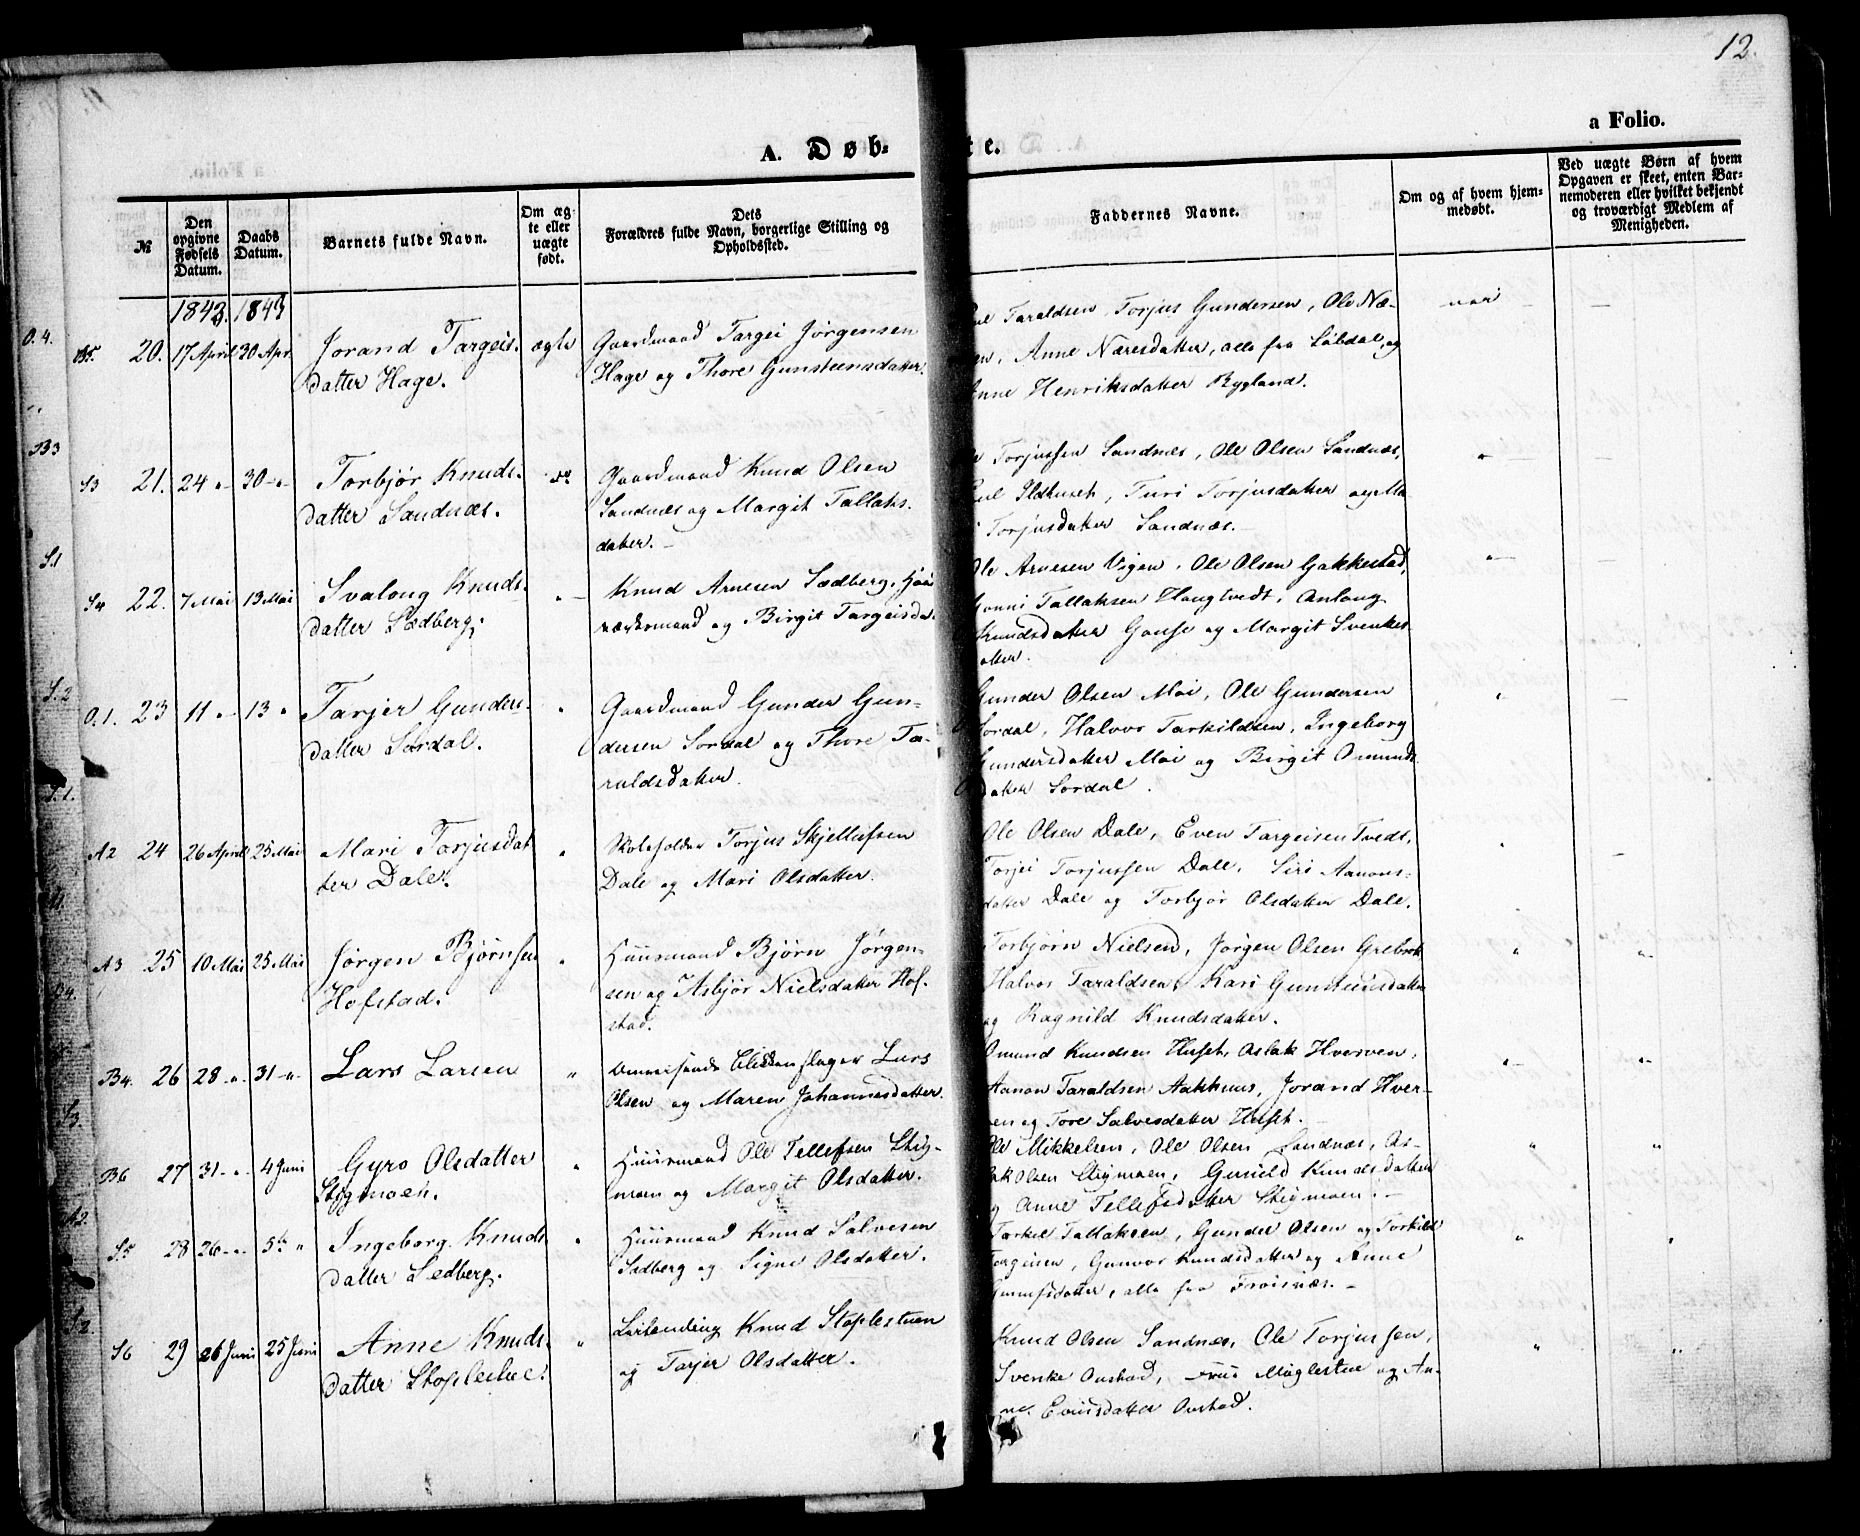 12.
a Folio.
A. Døb-
te.
№
Den opgivne Fødsels Datum.
Daabs Datum.
Barnets fulde Navn.
Om ægte eller uægte født.
Dets Forældres fulde Navn, borgerlige Stilling og Opholdssted.
Faddernes Navne.
Om og af hvem hjemmedøbt.
Ved uægte Børn af hvem
Opgaven er skeet, enten Bar-
nemoderen eller hvilket bekjendt
og troværdigt Medlem af
Menigheden.
1843. 1843
B5 20. 17 April 30 Apr. Jorand Targeis-
datter Hage.
ægte
Gaardmand Targei Jørgensen
Hage og Thore Gunsteensdatter.
Taraldsen, Torjus Gundersen, Ole Næ-
en, Anne Næresdatter, alle fra Løldal, og
Anne Henriksdatter Rygland.
nei
S3 21. 24 " 30 " Torbjør Knuds-
datter Sandnæs.
do
Gaardmand Knud Olsen
Sandnæs og Margit Tallaks-
datter.
Torjussen Sandnæs, Ole Olsen Sandnæs,
Ildhuset, Turi Torjusdatter og Ma
Torjusdatter Sandnæs.
S4 22. 7 Mai 13 Mai Svalong Knuds-
datter Sædberg.
Knud Arnesen Sædberg,
og Birgit Targeisda.
Ole Arnesen Vigen, Ole Olsen Gakkestad,
Gonni Tallaksen Haugtvedt, Anlaug
Knudsdatter Gause og Margit Svenkes-
atter.
O.1. 23 11 " 13 " Tarjer Gunders-
datter Sordal.
Gaardmand Gunder Gun-
dersen Sordal og Thore Ta-
raldsdatter.
Gunder Olsen Moi, Ole Gundersen
Sordal, Halvor Tarkildsen, Ingeborg
Gundersdatter Moi og Birgit Omunds
datter Sordal.
A2 24 26 April 25 Mai Mari Torjusdat
ter Dale.
Skoleholder Torjus Skjellufsen
Dale og Mari Olsdatter.
Ole Olsen Dale, Even Targeisen Tvedt,
Torjei Torjussen Dale, Siri Aanons-
datter Dale og Torbjør Olsdatter Dale.
A3 25 10 Mai 25 Mai Jørgen Bjørnsen
Hofstad.
Huusmand Bjørn Jørgen-
sen og Asbjør Nielsdatter Hof-
stad.
Torbjørn Nielsen, Jørgen Olsen Grebrok
Halvor Taraldsen, Kari Gunsteinsdatter
og Ragnild Knudsdatter.
B4. 26 28 " 31 " Lars Larsen
Omreisende Blikkenslager Lars
Olsen og Maren Johannesdatter.
Omund Knudsen Huset, Aslak Hverven,
Aanon Taraldsen Aakhuus, Jorand Hver-
en og Tore Salvesdatter Huset.
B6 27 31 " 4 Juni Gyro Olsdatter
Stigmoen.
Huusmand Ole Tellefsen Stig-
moen og Margit Olsdatter.
Ole Mikkelsen, Ole Olsen Sandnæs, As-
lak Olsen Stigmoen, Gunild Knudsdatter
og Anne Tellefsdatter Stigmoen.
S5 28 26 " 5te " Ingeborg Knuds
datter Sedberg.
Huusmand Knud Salvesen
Sædberg og Signe Olsdatter.
Tarkel Tallaksen, Gunder Olsen og Torkild
Torgeisen, Gunvor Knudsdatter og Anne
Gunufsdatter, alle fra Froisnæs.
S6 29 26 Juni 25 Juni Anne Knuds-
datter Stoplestue.
Leilending Knud Stoplestuen
og Tarjer Olsdatter.
Knud Olsen Sandnæs, Ole Torjussen,
Svenke Austad, Møglestue og An-
ne Evensdatter Austad.
O.4.
B3
S1
S.2
S.1.
B4.
S3.
A2.
S2.